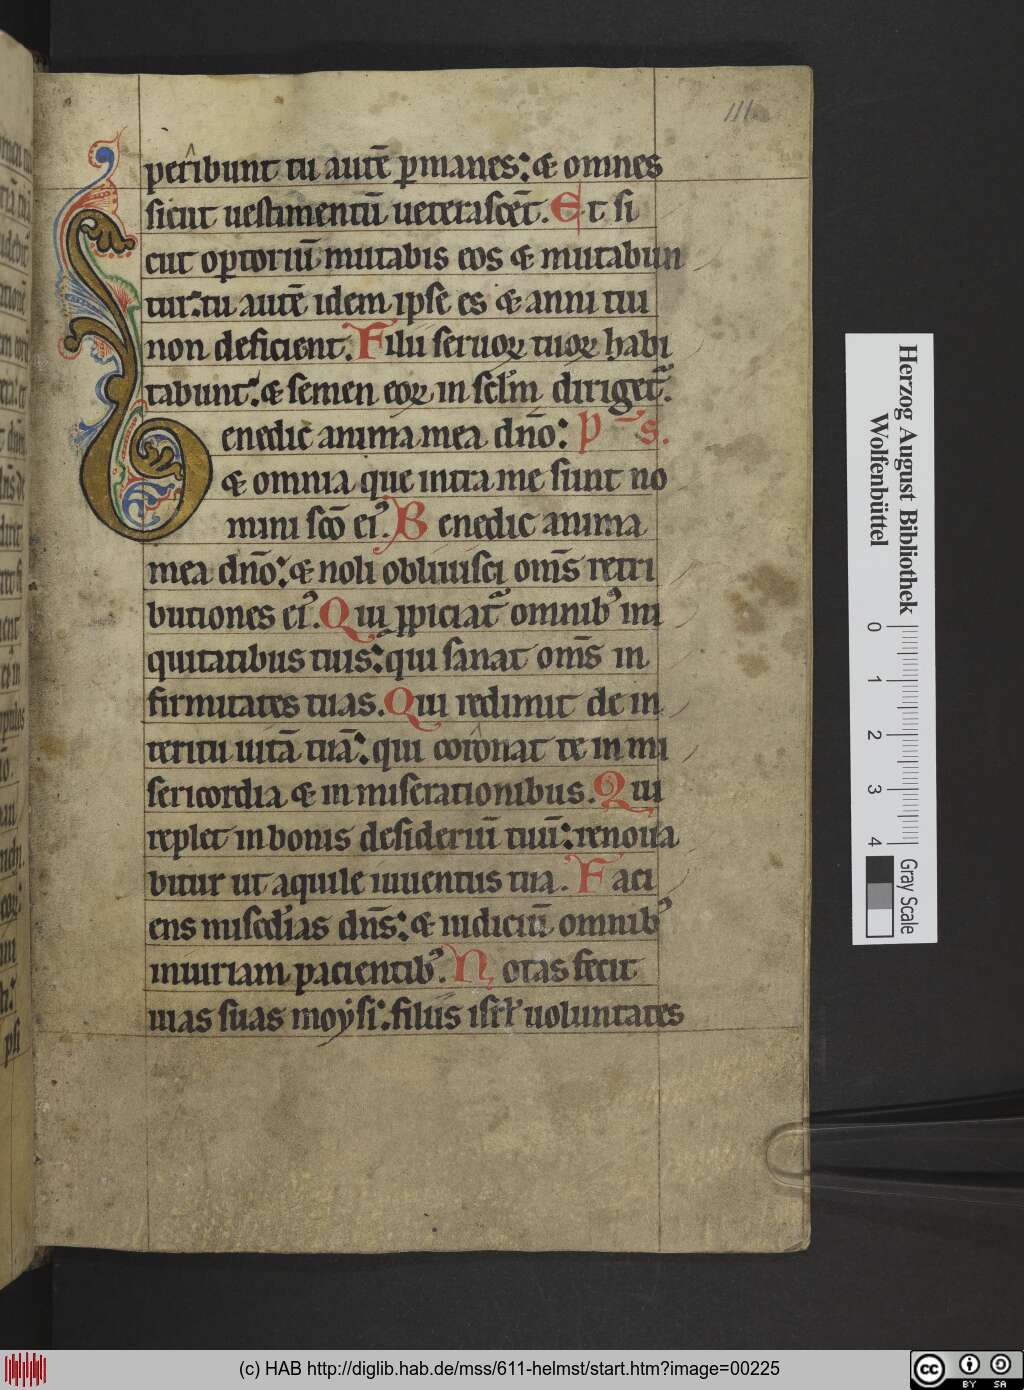 111.
peribunt tu autē ꝑmanes: & omnes
sicut uestimentū ueterascēt. Et si
cut opꝑtoriū mutabis eos & mutabun
tur: tu autē idem ipse es & anni tui
non deficient. Filii seruoꝝ tuoꝝ habi
tabunt: & semen eoꝝ in scl̄m dirigetᷣ.
Benedic anima mea dn̄o: P̄s.
& omnia que intra me sunt no
mini scō eiꝰ. Benedic anima
mea dn̄o: & noli obliuisci om̄s retri
butiones eiꝰ. Qui ꝓpiciatᷣ omnibꝰ ini
quitatibus tuis: qui sanat om̄s in
firmitates tuas. Qui redimit de in
teritu uitā tuā: qui coronat te in mi
sericordia & in miserationibus. Qui
replet in bonis desideriū tuū: renoua
bitur ut aquile iuuentus tua. Faci
ens miscd'ias dn̄s: & iudiciū omnibꝰ
iniuriam pacientibꝰ. Notas fecit
uias suas moẏsi: filiis isrł uoluntates
Herzog August Bibliothek
Wolfenbüttel
0 1 2 3 4
Gray Scale
(c) HAB http://diglib.hab.de/mss/611-helmst/start.htm?image=00225
cc BY SA